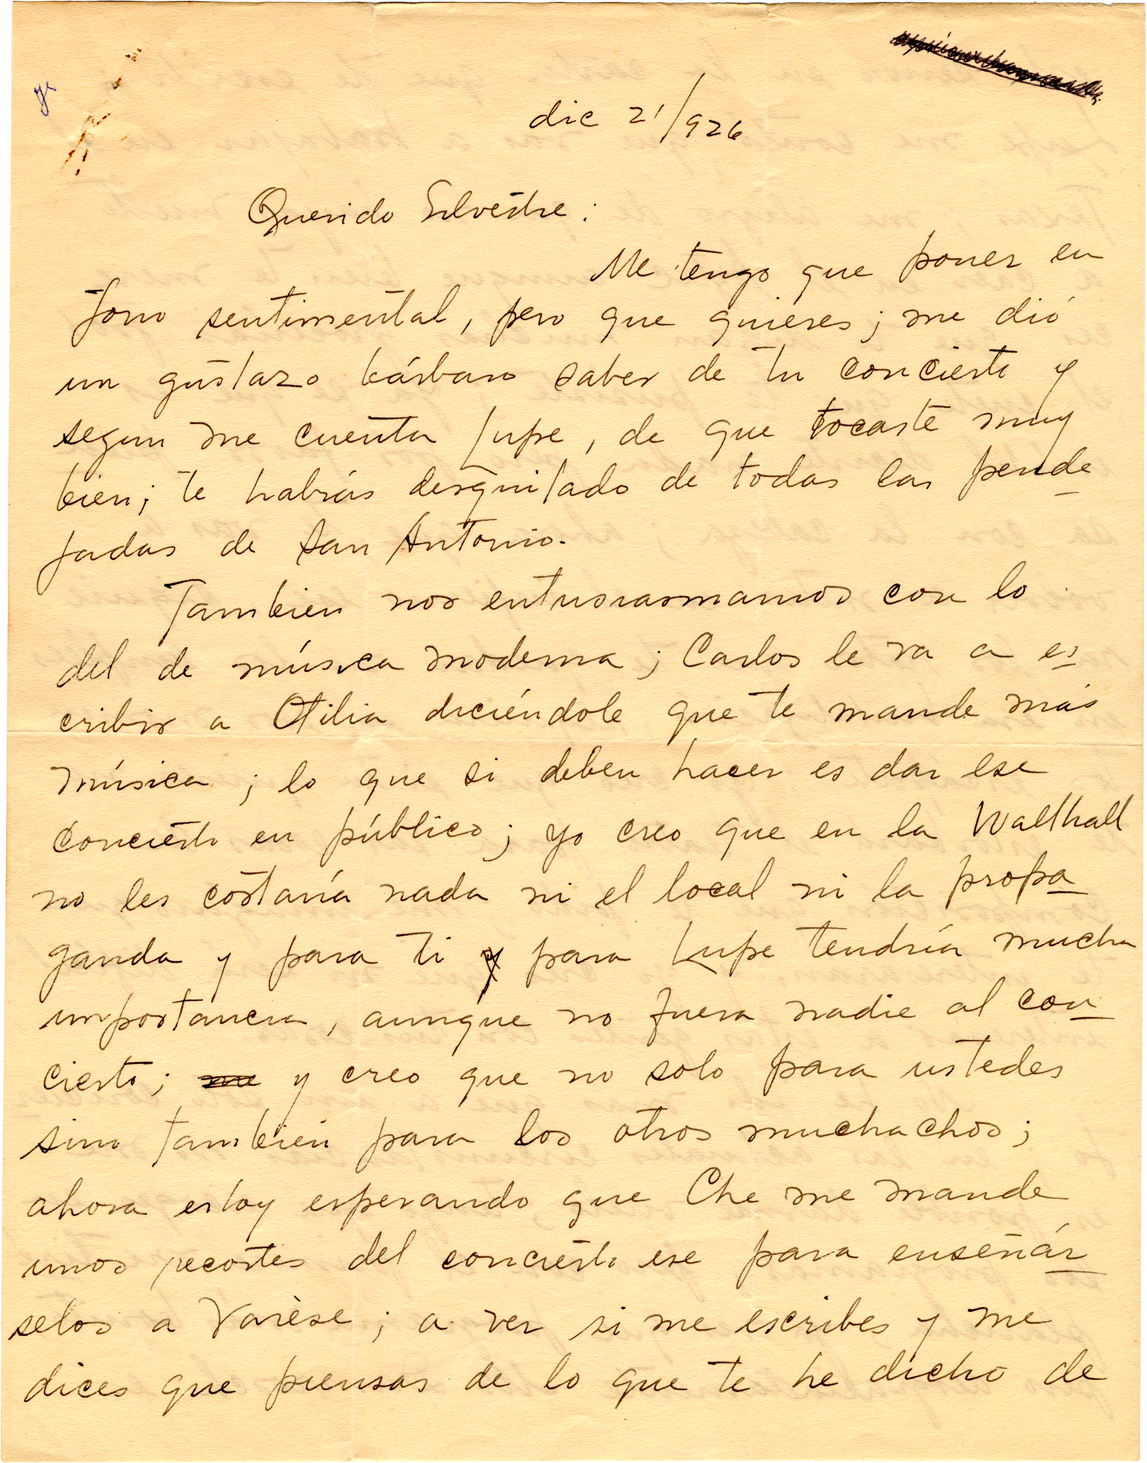 dic 21/926
Querido Silvestre:
Me tengo que poner en
tono sentimental, pero que quieres; me dió
un gustazo bárbaro saber de tu concierto y
segun me cuenta Lupe, de que tocaste muy
bien; te habrás desquitado de todas las pende
jadas de San Antonio.
Tambien nos entusiasmamos con lo
del de música moderna; Carlos le va a es
cribir a Otilia diciéndole que te mande más
música; lo que si deben hacer es dar ese
concierto en público; yo creo que en la Walthall
no les costaría nada ni el local ni la propa
ganda y para ti y para Lupe tendría mucha
importancia, aunque no fuera nadie al con
cierto; me y creo que no solo para ustedes
sino tambien para los otros muchachos;
ahora estoy esperando que Che me mande
unos recortes del concierto ese para enseñár
selos a Varèse; a ver si me escribes y me
dices que piensas de lo que te he dicho de